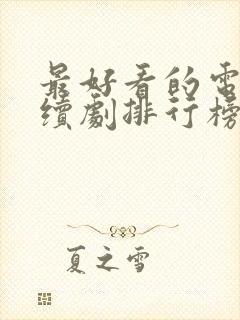 最好看的電
續劇排行榜
夏之雪